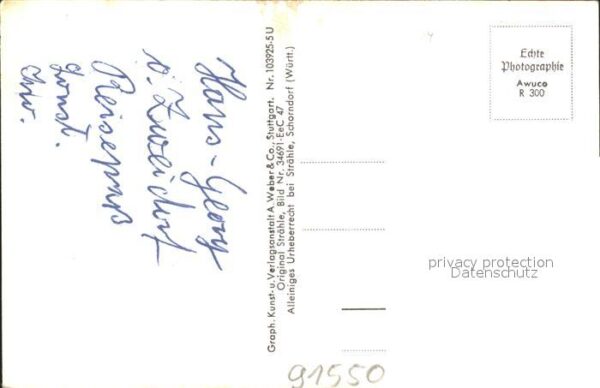 Hans-Georg
v. Zweidorf
Reisepruß
Graph. Kunst- u. Verlagsanstalt A. Weber & Co., Stuttgart. Nr. 103925-5 U
Original Strähle, Bild Nr. 34691-EeC 47
Alleiniges Urheberrecht bei Strähle, Schorndorf (Württ.)
Echte
Photographie
Awuco
R 300
privacy protection
Datenschutz
91550